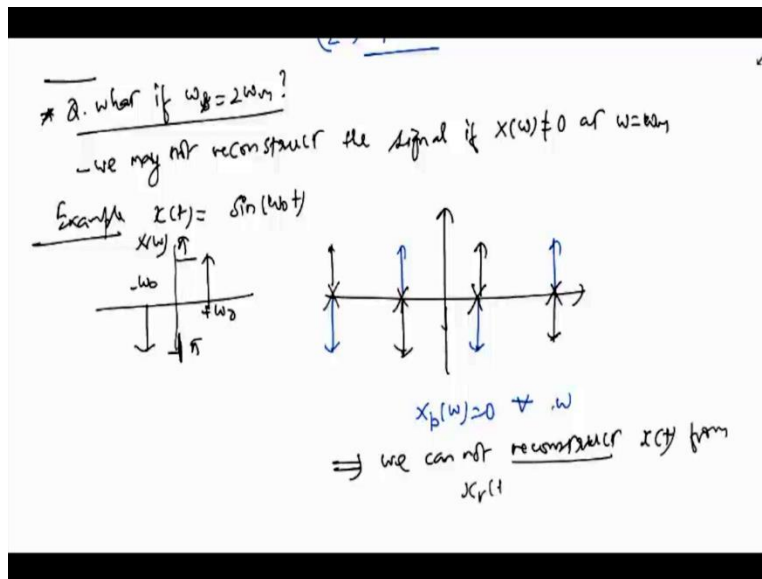 * Q. what if ws = 2wm?
- we may not reconstruct the signal if X(w) ≠ 0 at w = wm
Example x(t) = sin(w0t)
X(w) π
-w0
+w0
π
Xp(w) = 0 ∀ w
⇒ we can not reconstruct x(t) from
xr(t